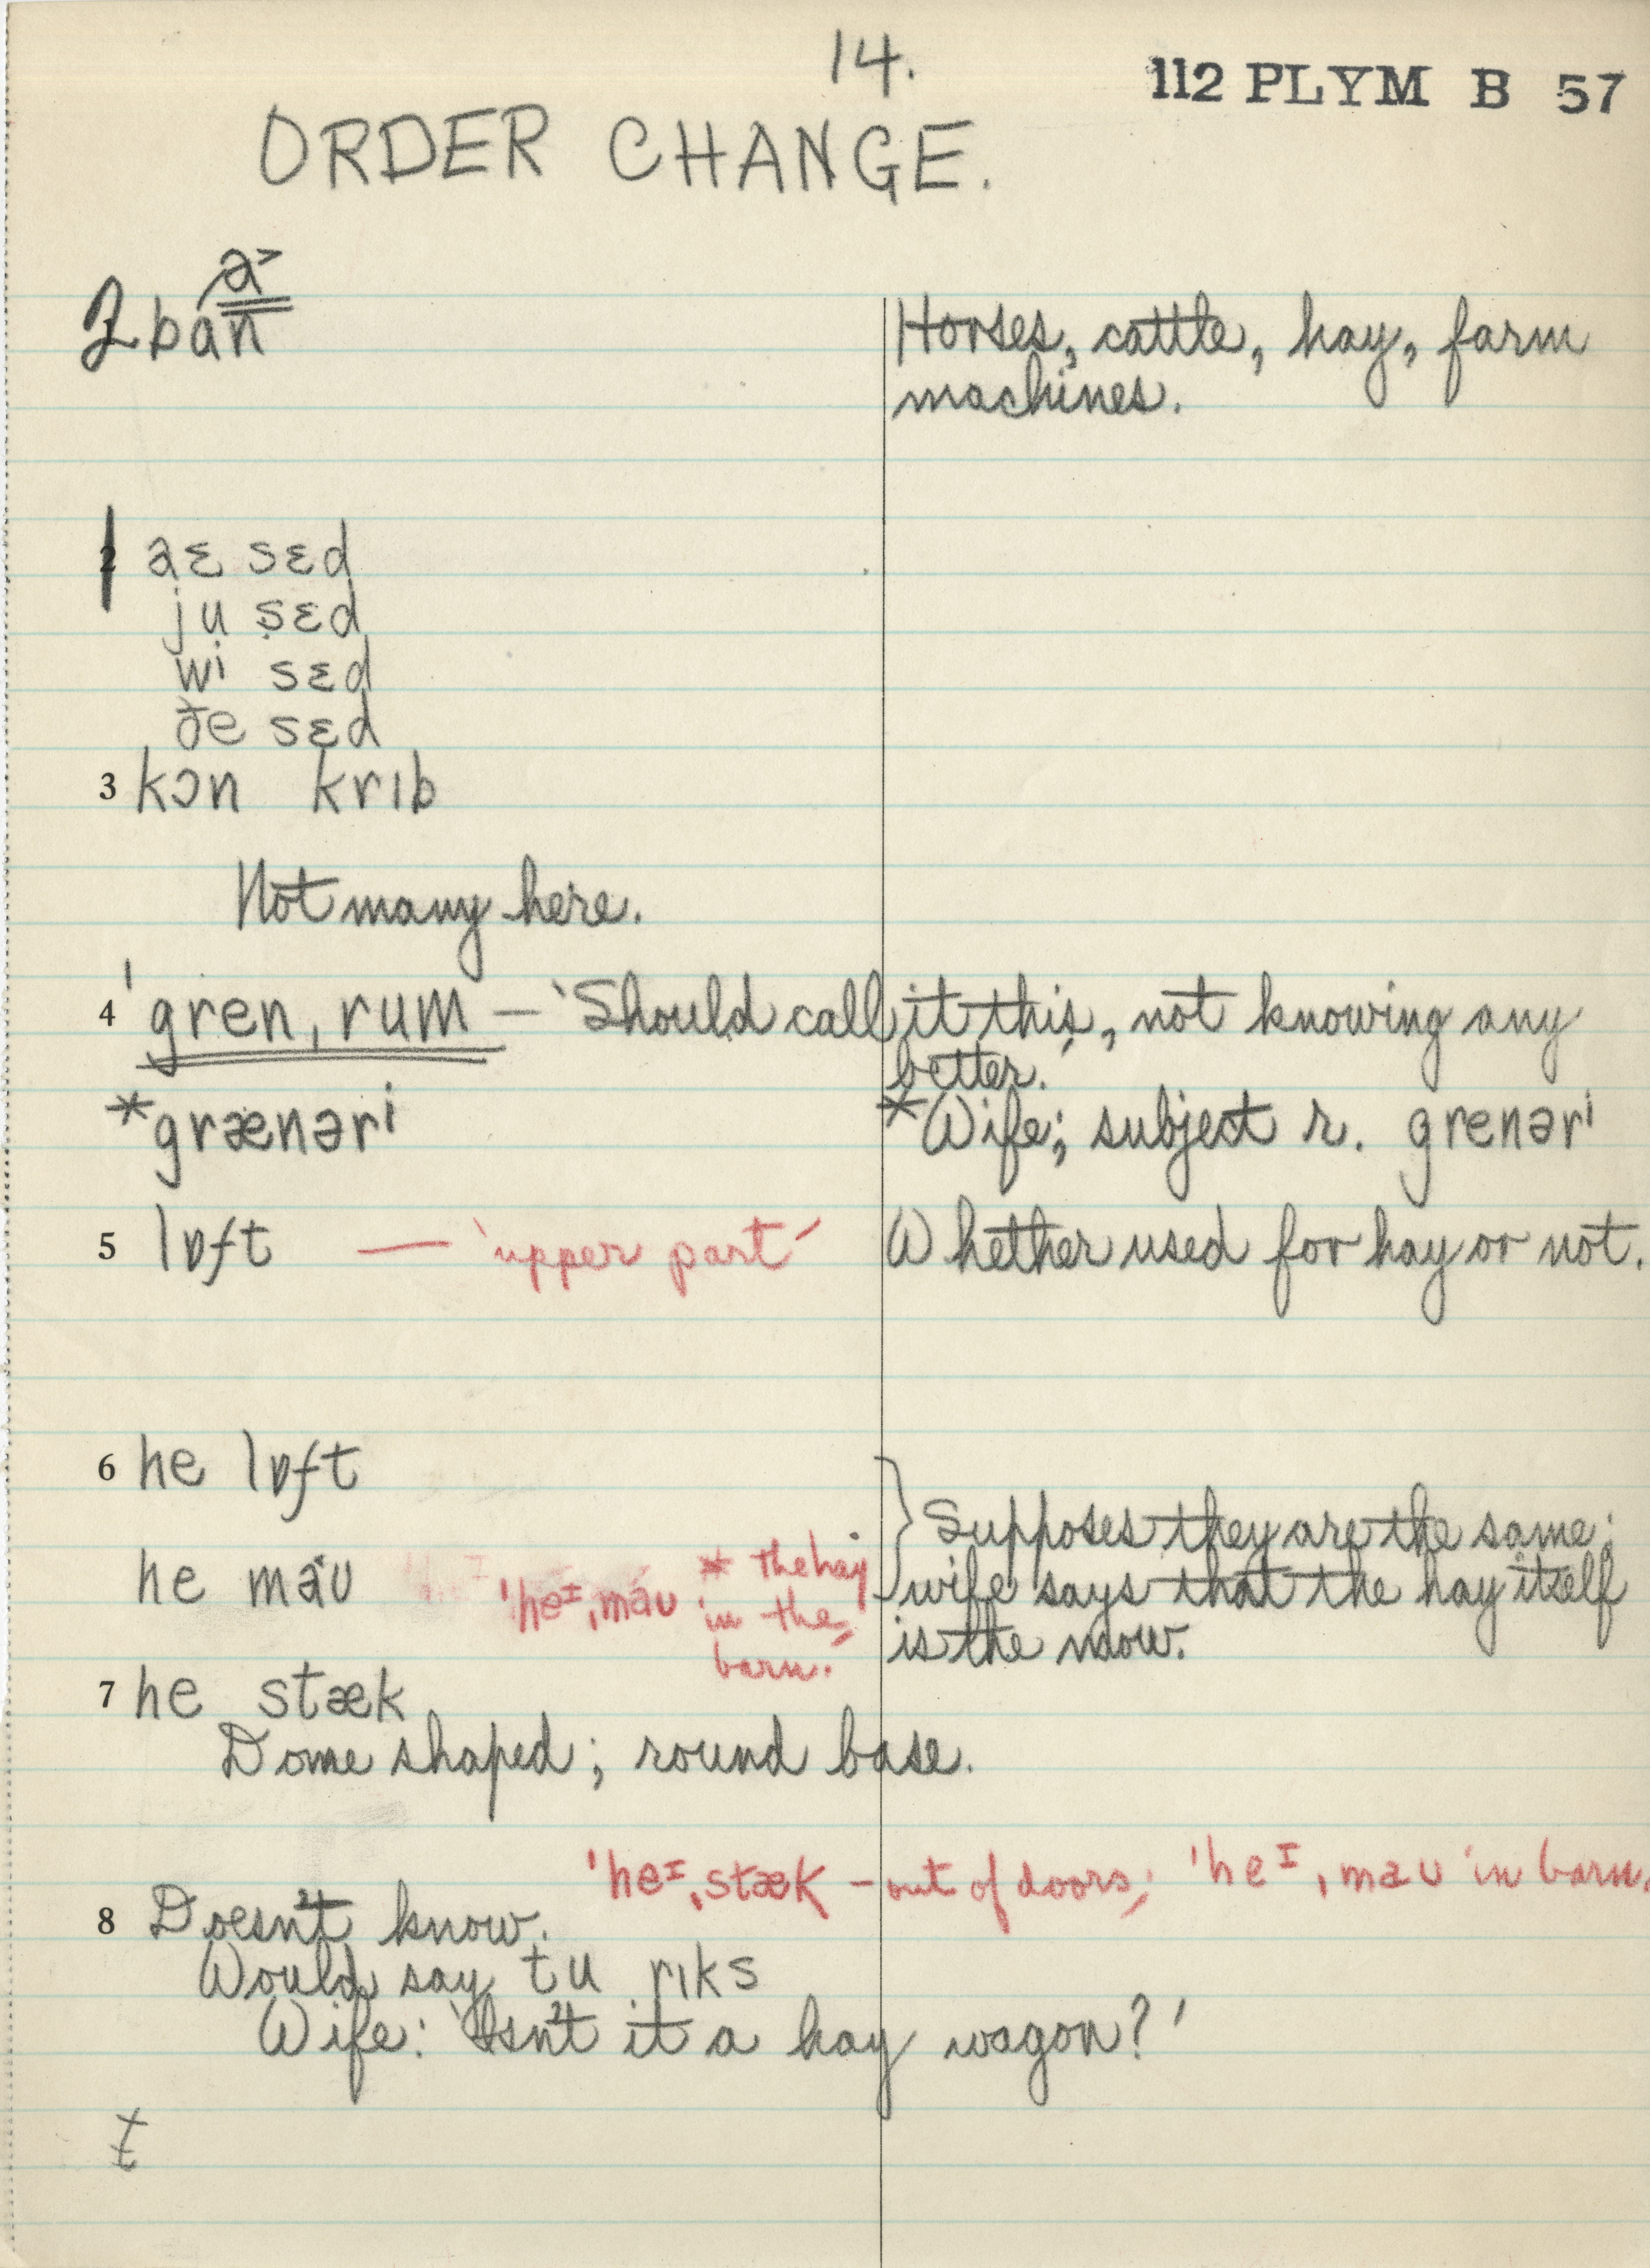 14.
112 PLYM B 57
ORDER CHANGE.
a˃
2 ban
Horses, cattle, hay, farm
machines.
1 aɛ sɛd
ju sɛd
wi sɛd
ðe sɛd
3 kɔn krɪb
Not many here.
4 ˈgren ˌrum — ‘Should call it this, not knowing any
better.’
*grænəri
*Wife; subject r. grenəri
5 lɒft — ‘upper part’ Whether used for hay or not.
6 he lɒft
he maʊ
ˈheɪˌmaʊ * the hay
in the
barn.’
Supposes they are the same;
wife says that the hay itself
is the mow.
7 he stæk
Dome shaped; round base.
ˈheɪˌstæk – out of doors; ˈheɪˌmaʊ in barn.
8 Doesn't know.
Would say tu rɪks
Wife: ‘Isn't it a hay wagon?’